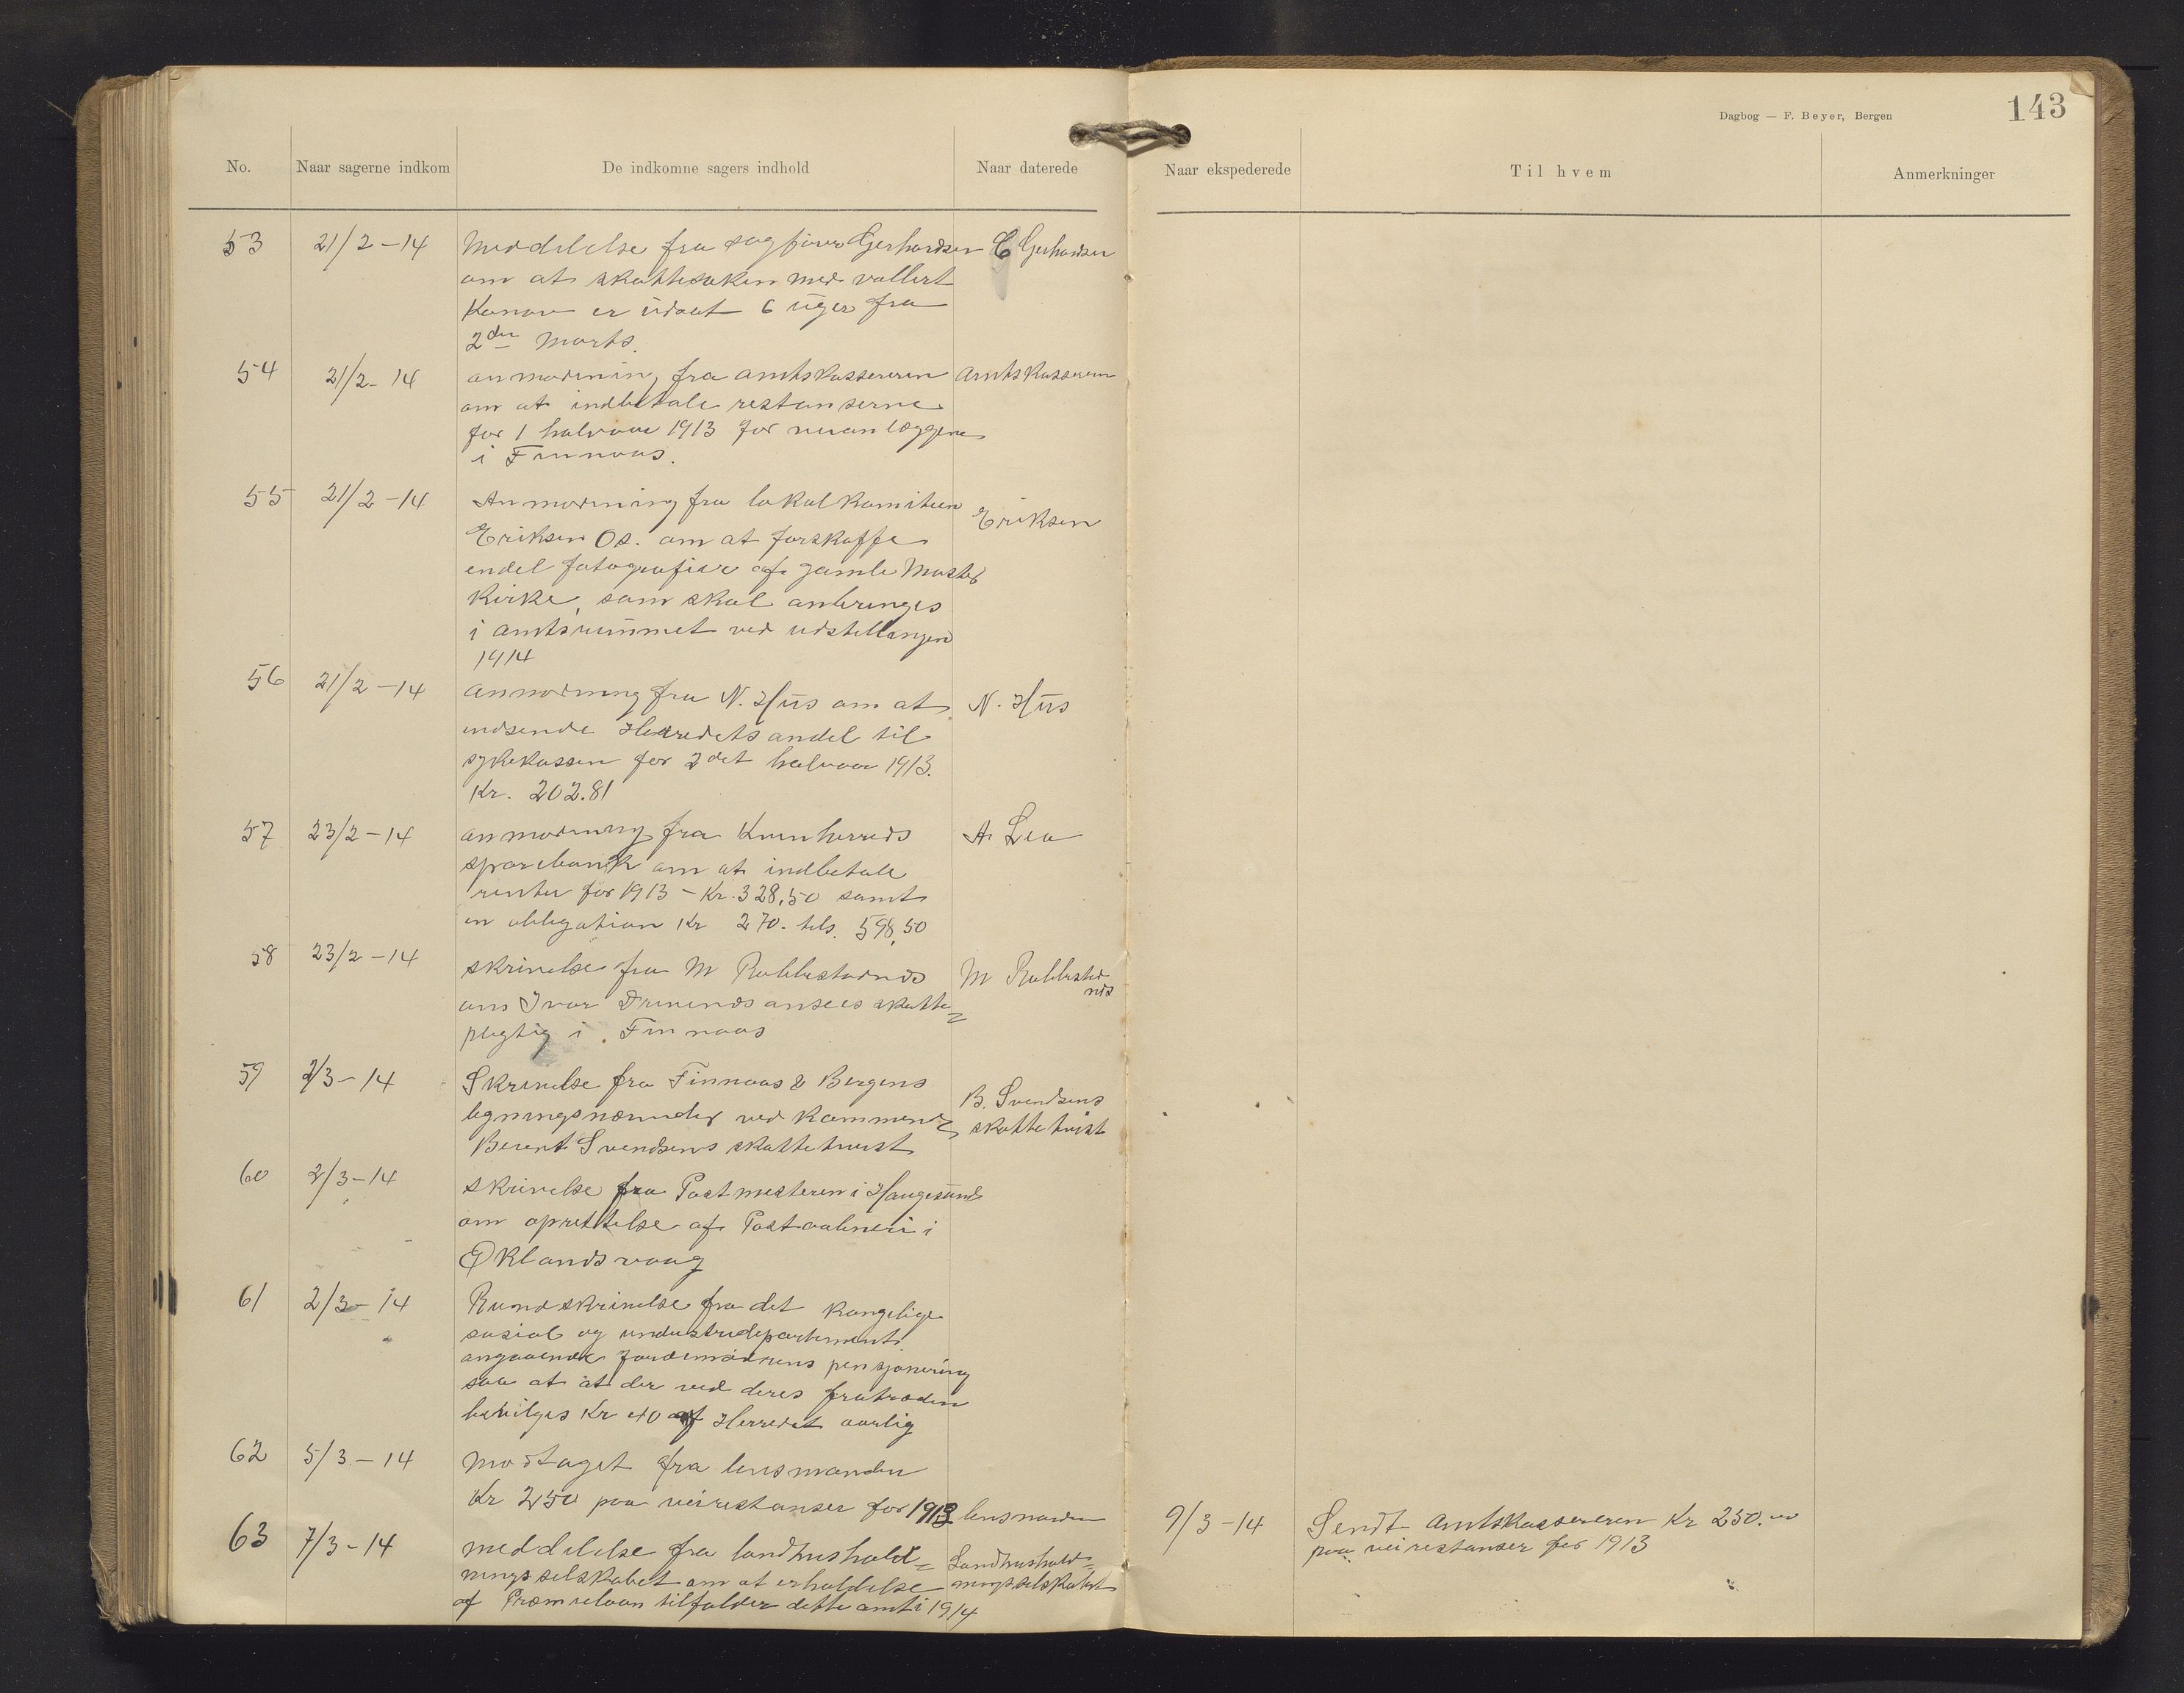 Dagbog — F. Beyer, Bergen
143
No. Naar sagerne indkom De indkomne sagers indhold Naar daterede Naar ekspederede Til hvem Anmerkninger
53 21/2-14 Meddelelse fra sagfører Gerhardsen C Gerhardsen
om at skattesaken med vallert
Kanau er udsat 6 uger fra
2den Marts.
54 21/2-14 anmodning fra amtskassereren Amtskassereren
om at indbetale restanserne
for 1 halvaar 1913 for veianlæggene
i Finnaas.
55 21/2-14 Anmodning fra lokalkomiteen
Eriksen Os. om at forskaffe Eriksen
endel fotografier af gamle Moster
Kirke, som skal anbringes
i amtsrummet ved udstillingen
1914
56 21/2-14 anmodning fra N. Hüs om at N. Hüs
indsende Herredets andel til
sykekassen for 2det halvaar 1913.
Kr. 202.81
57 23/2-14 anmodning fra Kvinherreds A. Lea
sparebank om at indbetale
renter for 1913 - Kr. 328,50 samt
en obligation Kr 270. tils. 598,50
58 23/2-14 skrivelse fra M Rubbestadnds M Rubbestad
nds
om Ivar Drivends ansees skatte=
pligtig i Finnaas
59 2/3-14 Skrivelse fra Finnaas & Bergens
B. Svendsens
ligningsnævnder ved kommende skattetvist
Berent Svendsens skattetvist
60 2/3-14 skrivelse fra Postmesteren i Haugesund
om oprettelse af Postaabneri i
Øklandsvaag
61 2/3-14 Rundskrivelse fra det kongelige
sosial og industridepartement
angaaende jordemødrens pensjonering
saa at at der ved deres fratræden
bevilges Kr 40 af Herredet aarlig
62 5/3-14 Modtaget fra lensmanden
Kr 250 paa veirestanser for 1913 lensmanden 9/3-14 Sendt Amtskassereren Kr 250.00
paa veirestanser for 1913
63 7/3-14 meddelelse fra landhushold= Landhushold=
ningsselskabet om at erholdelse ningsselskabet
af Præmielaan tilfalder dette amt i 1914